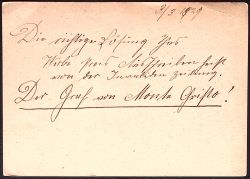 Die richtige Lösung Ihres
Preis Ausschreiben heißt
von der Invaliden Zeitung.
Der Graf von Monte Christo!